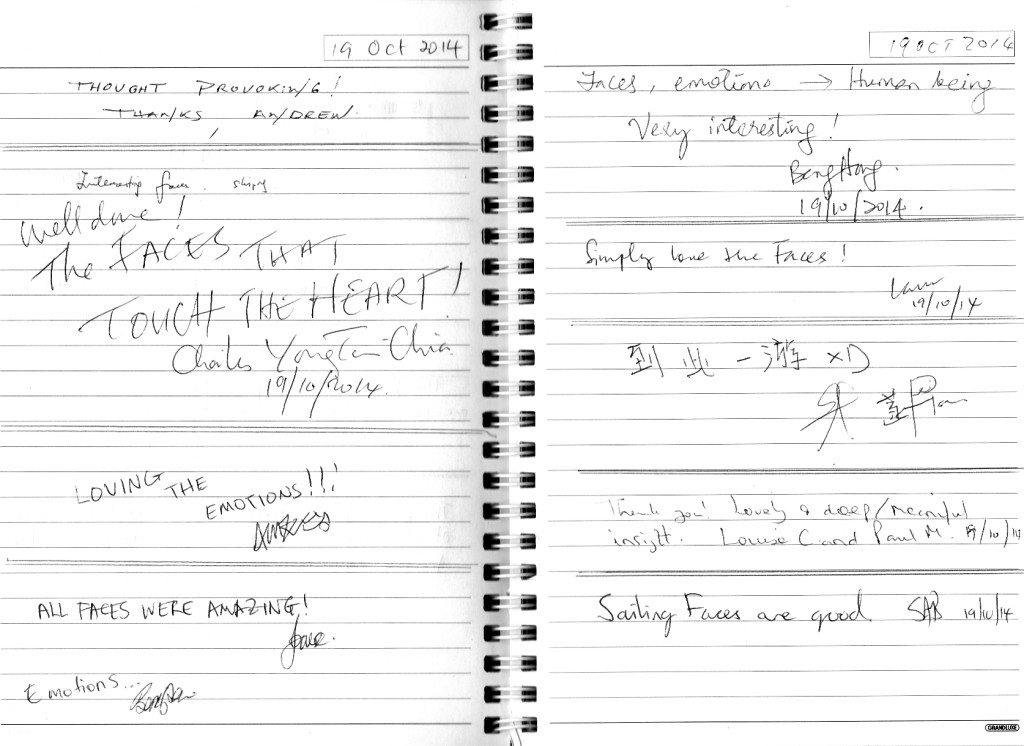 19 Oct 2014
THOUGHT PROVOKING!
THANKS, ANDREW.
Interesting faces.
Well done!
The FACES THAT
TOUCH THE HEART!
Charles Yong
19/10/2014.
LOVING THE
EMOTIONS!!!
ALL FACES WERE AMAZING!
Emotions...
19 OCT 2014
Faces, emotions → Human being
Very interesting!
Beng Hong.
19/10/2014.
Simply love the Faces!
19/10/14
到此一游 XD
Thank you! Lovely & deep/meaningful
insight. Louise C. and Paul M. 19/10/14
Sailing Faces are good SAB 19/10/14
GRANDLUXE